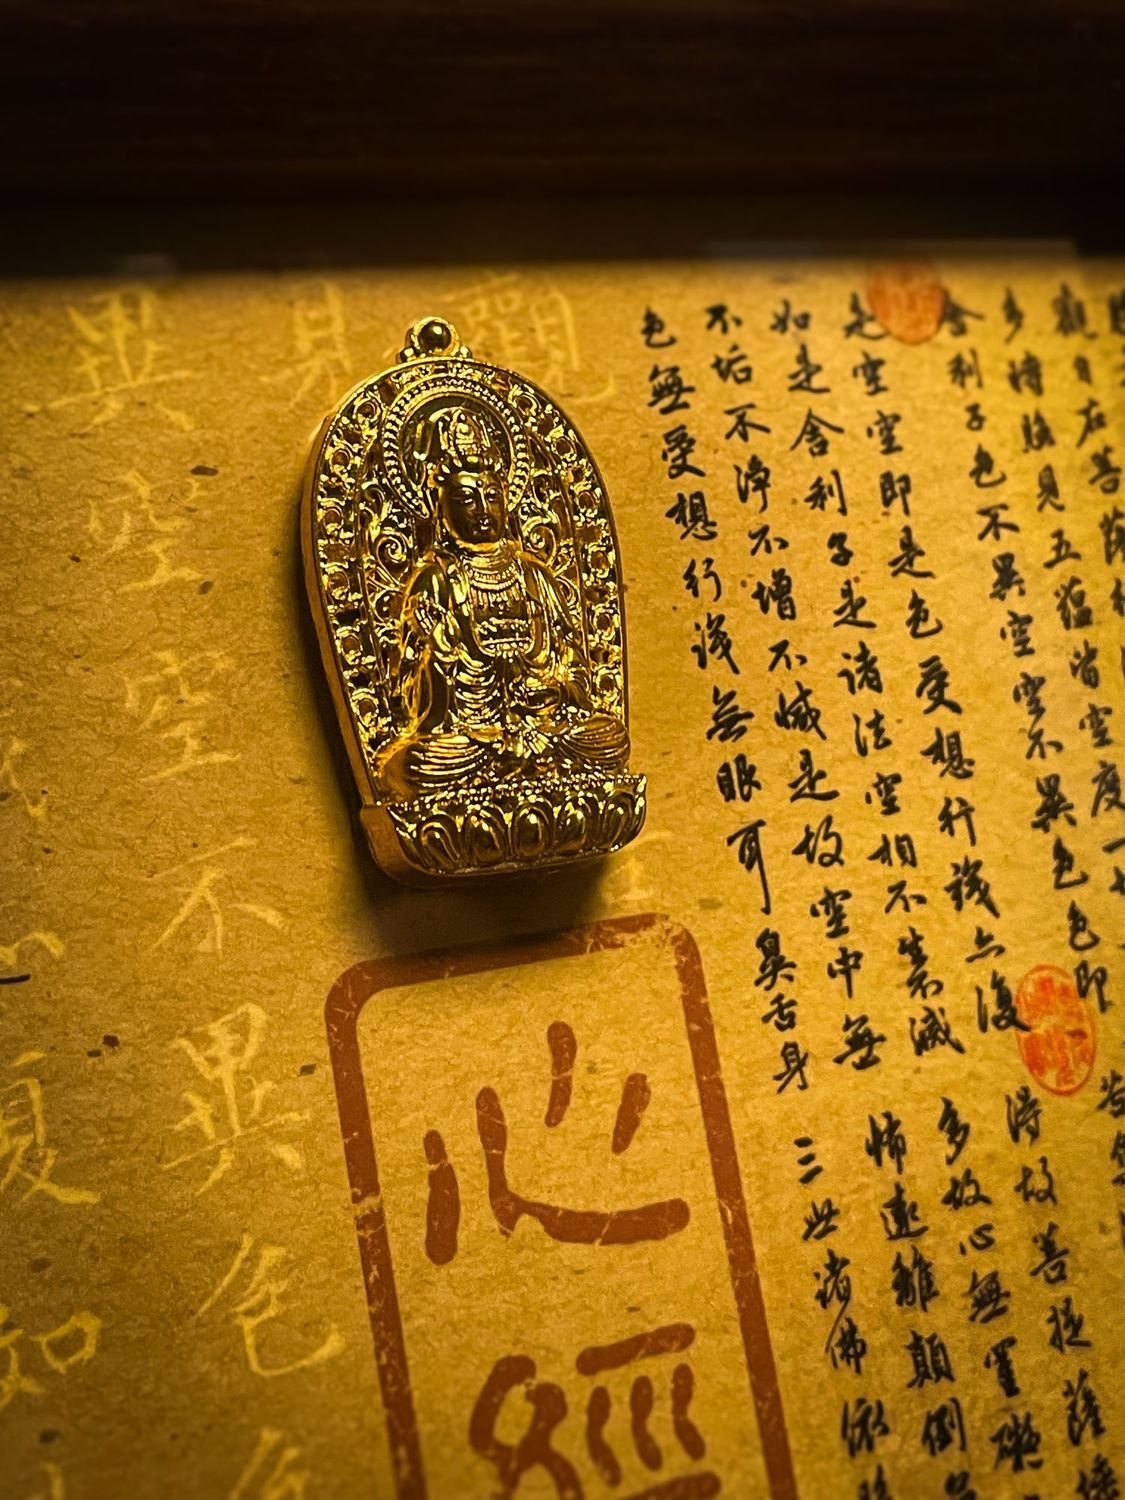 觀自在菩薩行
多時照見五蘊皆空度一切
舍利子色不異空空不異色色即
是空空即是色受想行識亦復
如是舍利子是諸法空相不生不滅
不垢不淨不增不減是故空中無
色無受想行識無眼耳鼻舌身
得故菩提薩埵
多故心無罣礙
怖遠離顛倒
三世諸佛依
心經
觀
見
異空空不異色色
復如